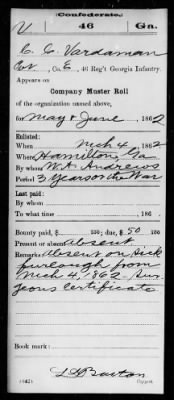 Confederate.
V 46 Ga.
C. C. Vardaman
Pvt, Co. E, 46 Reg't Georgia Infantry.
Appears on
Company Muster Roll
of the organization named above,
for May & June, 1862
Enlisted:
When Mch 4, 1862
Where Hamilton, Ga
By whom W. A. Andrews
Period 3 Years or the War
Last paid:
By whom
To what time , 186
Bounty paid $ 100; due, $ 50 100
Present or absent Absent
Remarks: Absent on sick
furlough from
Mch 4, 1862 Sur
geons certificate
Book mark:
(642)
Copyist.